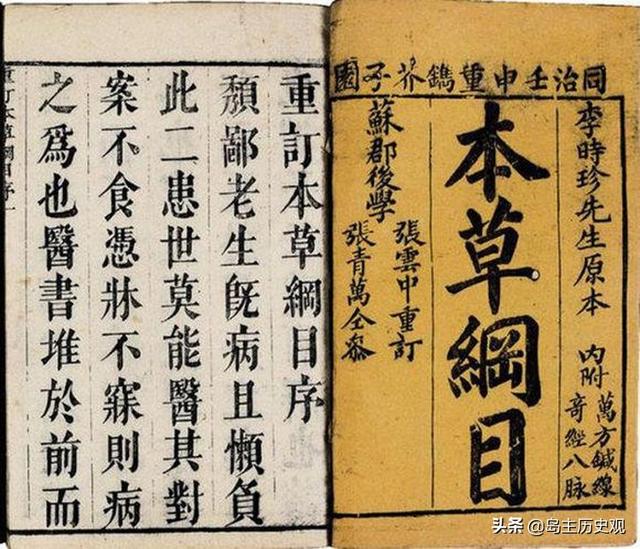 同治壬申重鐫芥子園
李時珍先生原本
內附
萬方鍼線
奇經八脉
本草綱目
蘇郡後學
張雲中重訂
張青萬仝叅
重訂本草綱目序
頽鄙老生旣病且懶負
此二患世莫能醫其對
案不食憑牀不寐則病
之爲也醫書堆於前而
重訂本草綱目序一
头条 @岛主历史观